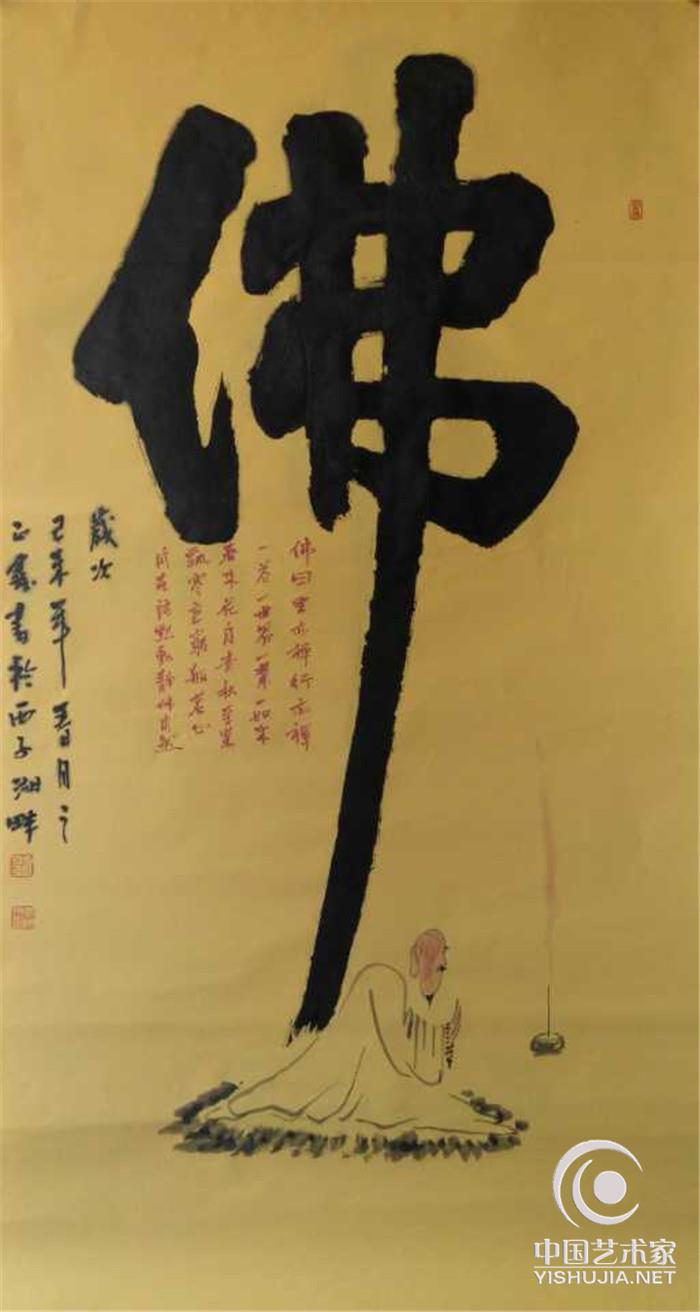 佛
佛曰坐亦禪行亦禪
一花一世界一葉一如来
春来花自青秋至葉
飄零無窮般若心
自在語默動静体自然
歲次
乙未年春月之
正鑫書於西子湖畔
中国艺术家
YISHUJIA.NET